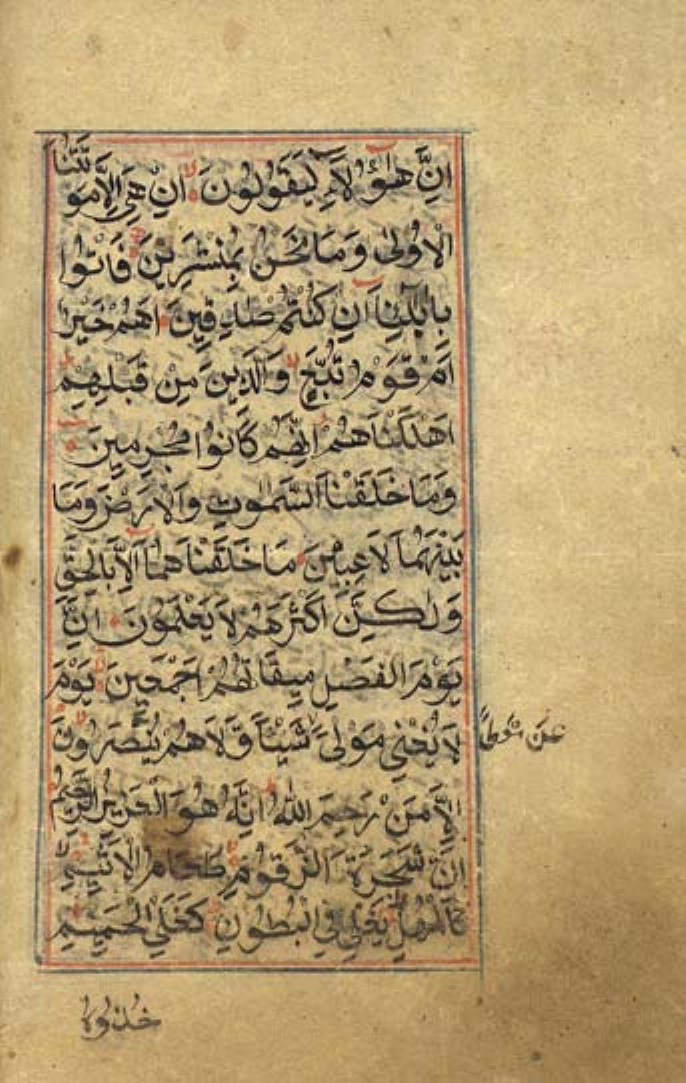 اِنَّ هٰٓؤُلَآءِ لَيَقُولُونَ اِنْ هِيَ اِلَّا مَوْتَتُنَا
الْاُولٰى وَمَا نَحْنُ بِمُنْشَرِينَ فَأْتُوا
بِاٰبَآئِنَآ اِنْ كُنْتُمْ صٰدِقِينَ اَهُمْ خَيْرٌ
اَمْ قَوْمُ تُبَّعٍ وَالَّذِينَ مِنْ قَبْلِهِمْ
اَهْلَكْنَاهُمْ اِنَّهُمْ كَانُوا مُجْرِمِينَ
وَمَا خَلَقْنَا السَّمٰوٰتِ وَالْاَرْضَ وَمَا
بَيْنَهُمَا لَاعِبِينَ مَا خَلَقْنَاهُمَآ اِلَّا بِالْحَقِّ
وَلٰكِنَّ اَكْثَرَهُمْ لَا يَعْلَمُونَ اِنَّ
يَوْمَ الْفَصْلِ مِيقَاتُهُمْ اَجْمَعِينَ يَوْمَ
لَا يُغْنِي مَوْلًى شَيْئًا وَّلَا هُمْ يُنْصَرُونَ
عَنْ مَوْلًى
اِلَّا مَنْ رَحِمَ اللّٰهُ اِنَّهُ هُوَ الْعَزِيزُ الرَّحِيمُ
اِنَّ شَجَرَةَ الزَّقُّومِ طَعَامُ الْاَثِيمِ
كَالْمُهْلِ يَغْلِي فِي الْبُطُونِ كَغَلْيِ الْحَمِيمِ
خُذُوهُ